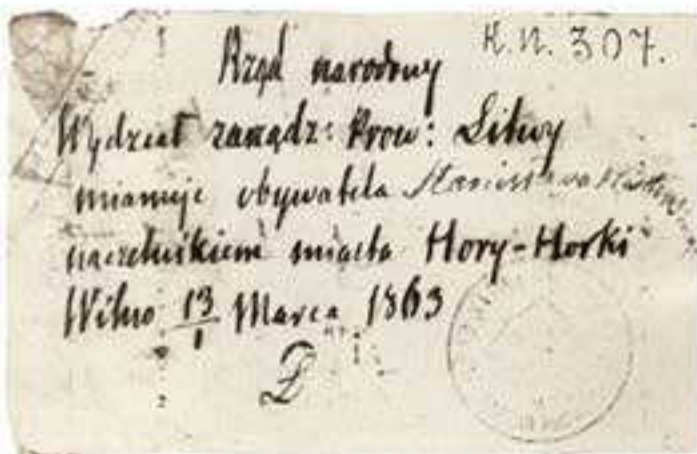 K.N. 307.
Rząd narodowy
Wydział zarządz: Prow: Litwy
mianuje obywatela Stanisława
naczelnikiem miasta Hory-Horki
Wilno 13/1 Marca 1863